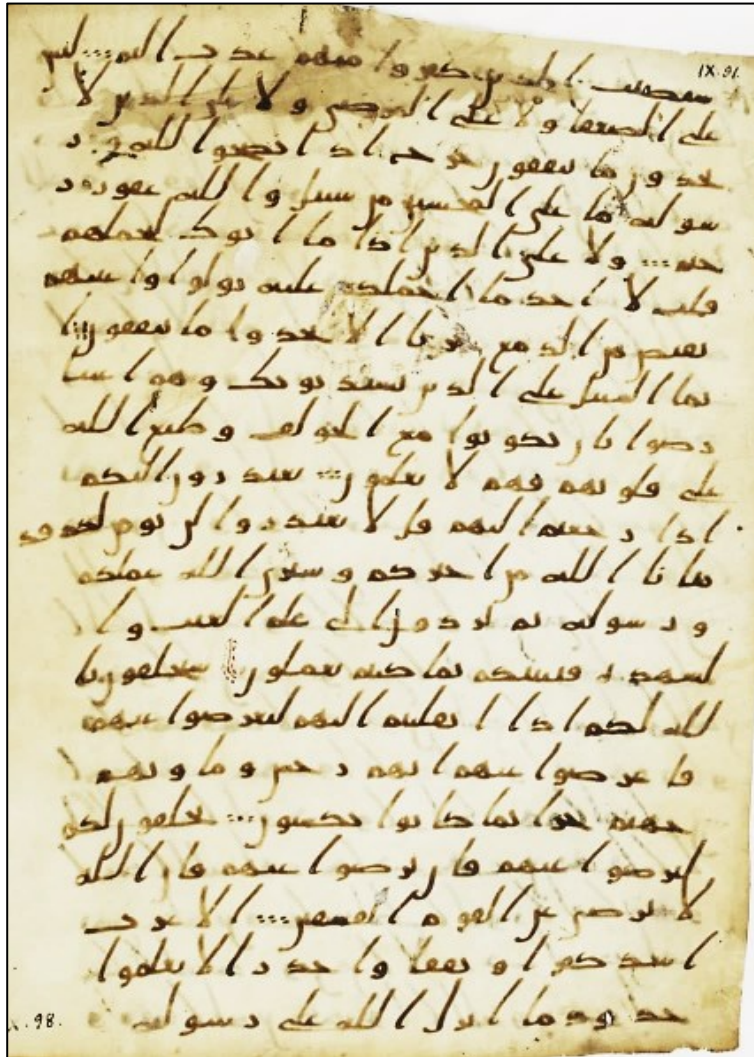 IX.91.
سيصيب الذين كفروا منهم عذب اليم ليس
على الضعفا ولا على المرضى ولا على الذين لا
يجدون ما ينفقون حرج اذا نصحوا لله و ر
سوله ما على المحسنين من سبيل والله غفور ر
حيم ولا على الذين اذا ما اتوك لتحملهم
قلت لا اجد ما احملكم عليه تولوا واعينهم
تفيض من الدمع حزنا الا يجدوا ما ينفقون ا
نما السبيل على الذين يستذنونك وهم اغنيا
رضوا بان يكونوا مع الخولف وطبع الله
على قلوبهم فهم لا يعلمون يعتذرون اليكم
اذا رجعتم اليهم قل لا تعتذروا لن نومن لكم قد
نبانا الله من اخبركم وسيرى الله عملكم
ورسوله ثم تردون الى علم الغيب وا
لشهدة فينبكم بما كنتم تعملون سيحلفون با
لله لكم اذا انقلبتم اليهم لتعرضوا عنهم
فاعرضوا عنهم انهم رجس وماويهم
جهنم جزا بما كانوا يكسبون يحلفون لكم
لترضوا عنهم فان ترضوا عنهم فان الله
لا يرضى عن القوم الفسقين الاعرب
اشد كفرا ونفقا واجدر الا يعلموا
حدود ما انزل الله على رسوله
98.